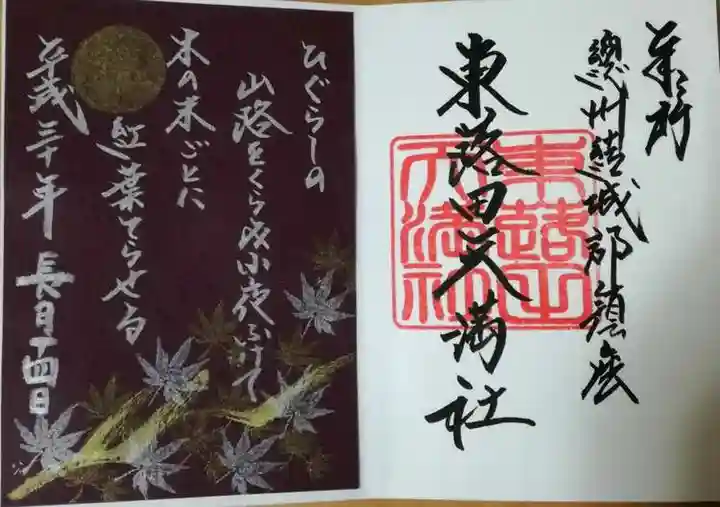 奉拝
總州結城郡鎮座
東蕗田天満社
東蕗田天満社
ひぐらしの
山路をくらみ小夜ふけて
木の末ごとに
紅葉てらせる
平成三十年 長月十四日